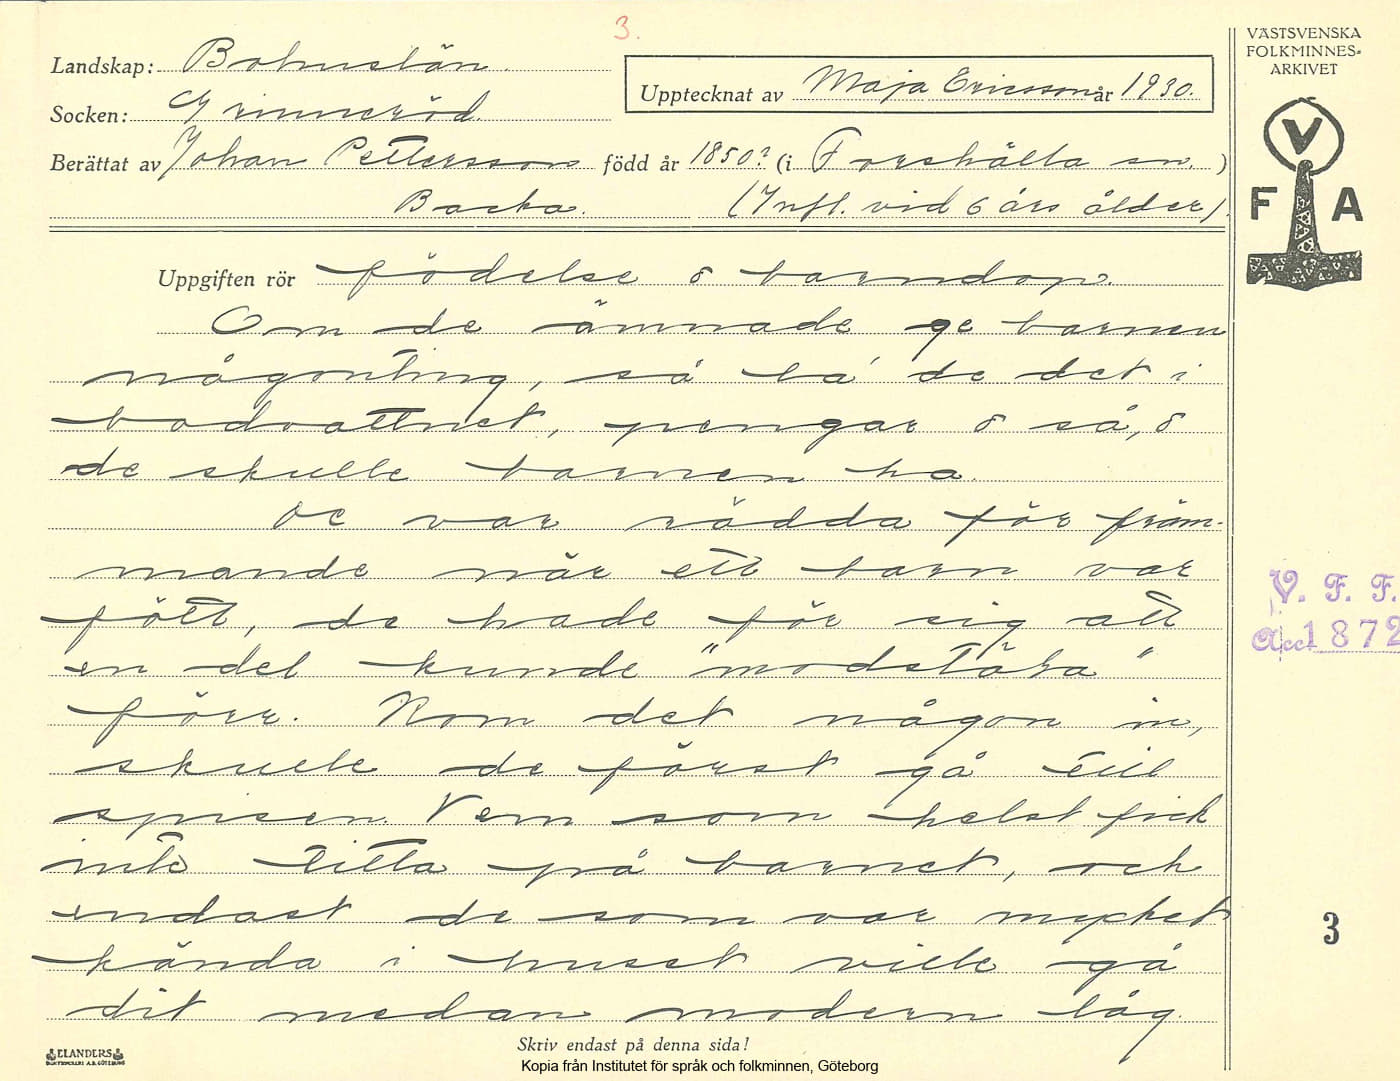 3.
Landskap: Bohuslän
Socken: Grinneröd.
Upptecknat av Maja Ericsson år 1930.
Berättat av Johan Pettersson född år 1850? (i Forshälla sn. )
Backa. (Infl. vid 6 års ålder).
Uppgiften rör födelse o barndop.
Om de ämnade ge barnen
någonting, så la' de det i
badvattnet, pengar o så, o
de skulle barnen ha.
De var rädda för främ-
mande när ett barn var
fött, de hade för sig att
en del kunde "modstöka"
förr. Kom det någon in,
skulle de först gå till
spisen. Vem som helst fick
inte titta på barnet, och
endast de som var mycket
kända i huset ville gå
dit medan modern låg.
Skriv endast på denna sida!
ELANDERS
Kopia från Institutet för språk och folkminnen, Göteborg
VÄSTSVENSKA
FOLKMINNES-
ARKIVET
V
F A
V. F. F.
Acc 1872
3